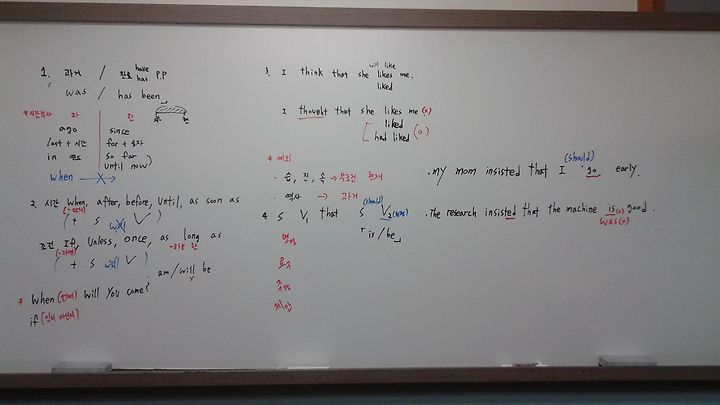 1. 과거 / 완료 have has P.P
was / has been
*시간부사 과 완
ago since
last + 시간 for + 숫자
in 연도 so far
until now
when X
2. 시간 when, after, before, until, as soon as
( + S will V )
조건 If, unless, once, as long as
( + S will V )
am/will be
* When (언제) will you come?
if (인지 아닌지)
3. I think that she likes me.
will like
liked
I thought that she likes me (x)
liked
had liked (o)
* 예외.
· 습, 진, 속 → 무조건 현재
· 역사 → 과거
4. S V1 that S (should) V2
「is/be」
명령
요구
주장
제안
· my mom insisted that I (should) go early.
· The research insisted that the machine is(x) good.
was(o)